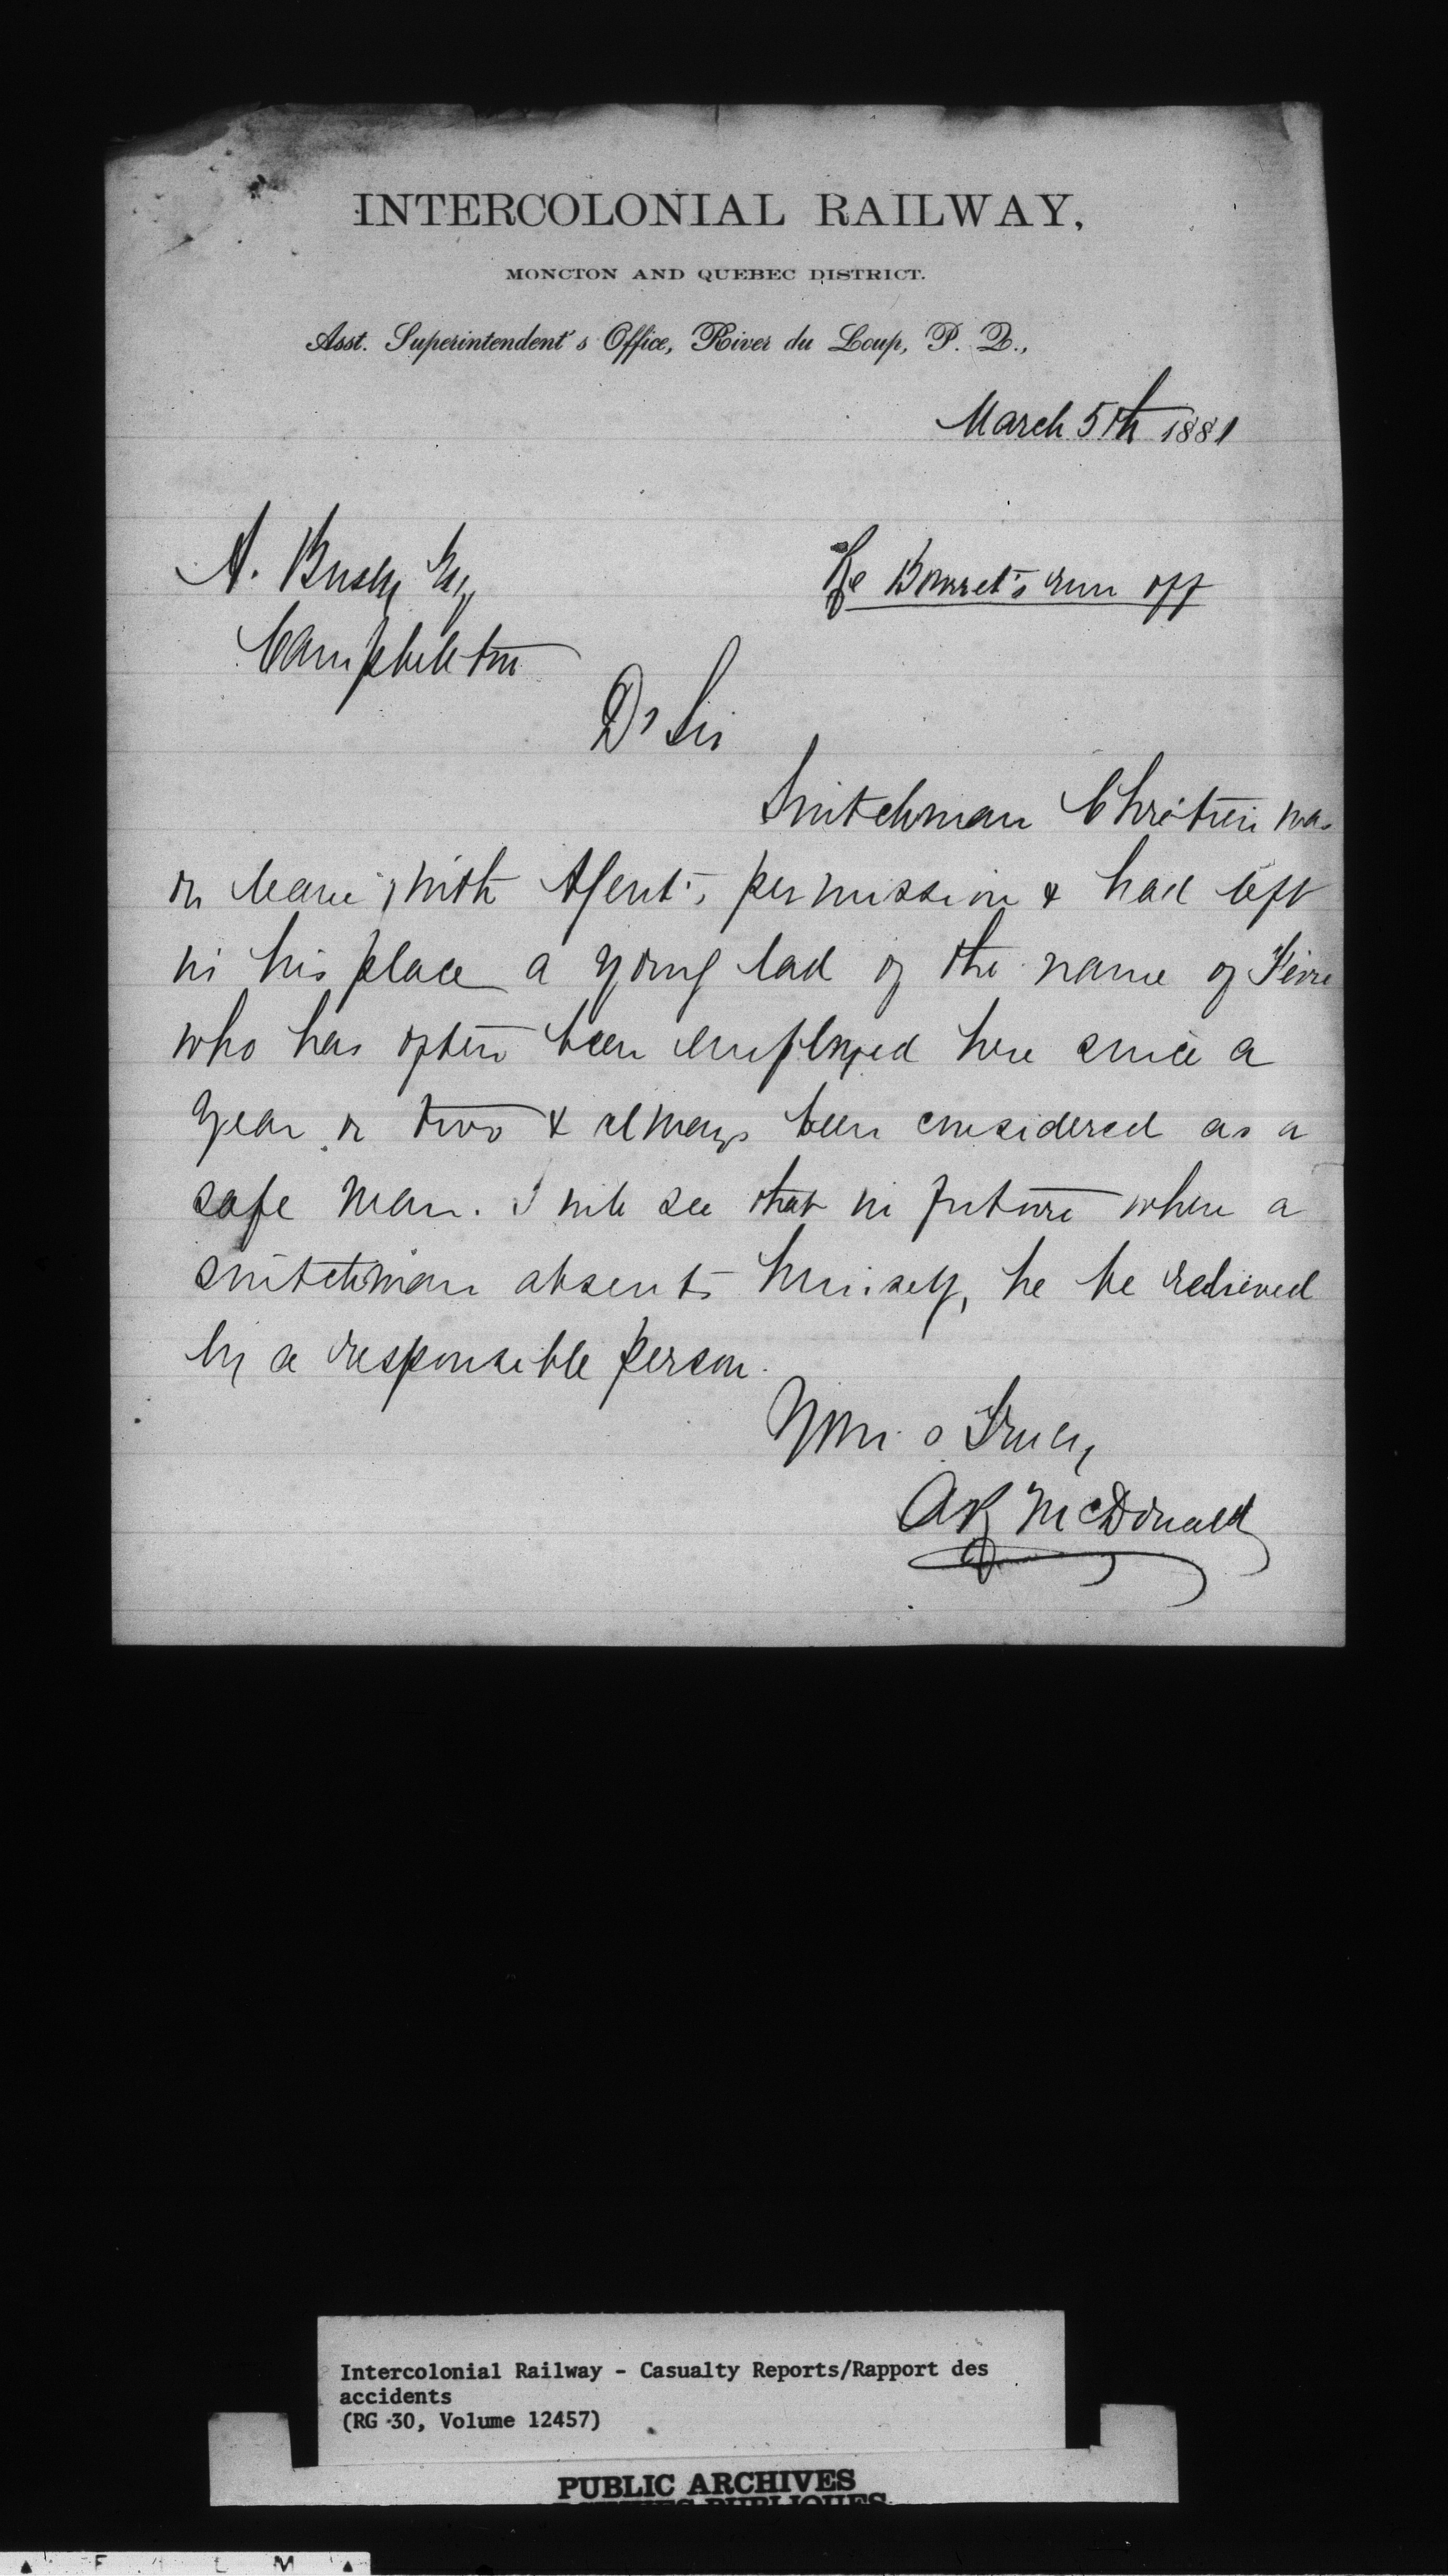 INTERCOLONIAL RAILWAY,
MONCTON AND QUEBEC DISTRICT.
Asst. Superintendent's Office, River du Loup, P. Q.,
March 5th 1881
A. Busby Esq
Re Bourret's run off
Campbellton
Dr Sir
Switchman Chrétien was
on leave, with Agent's permission & had left
in his place a young lad of the name of
who has often been employed here since a
year or two & always been considered as a
safe man. I will see that in future when a
switchman absents himself, he be relieved
by a responsible person.
Yours Truly,
AR McDonald
Intercolonial Railway - Casualty Reports/Rapport des
accidents
(RG 30, Volume 12457)
PUBLIC ARCHIVES
ARCHIVES PUBLIQUES